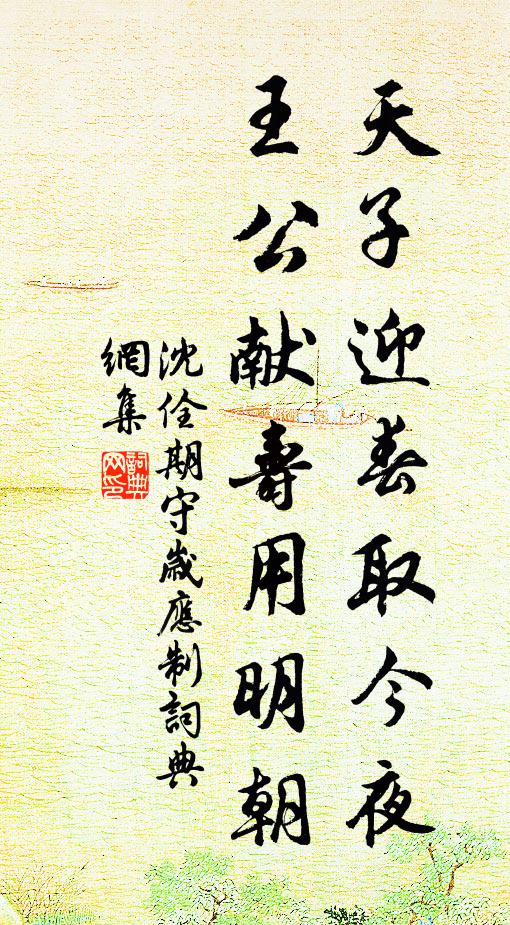 天子迎春取今夜
王公献壽用明朝
沈佺期守歲應制詞典
網集
詞典网印